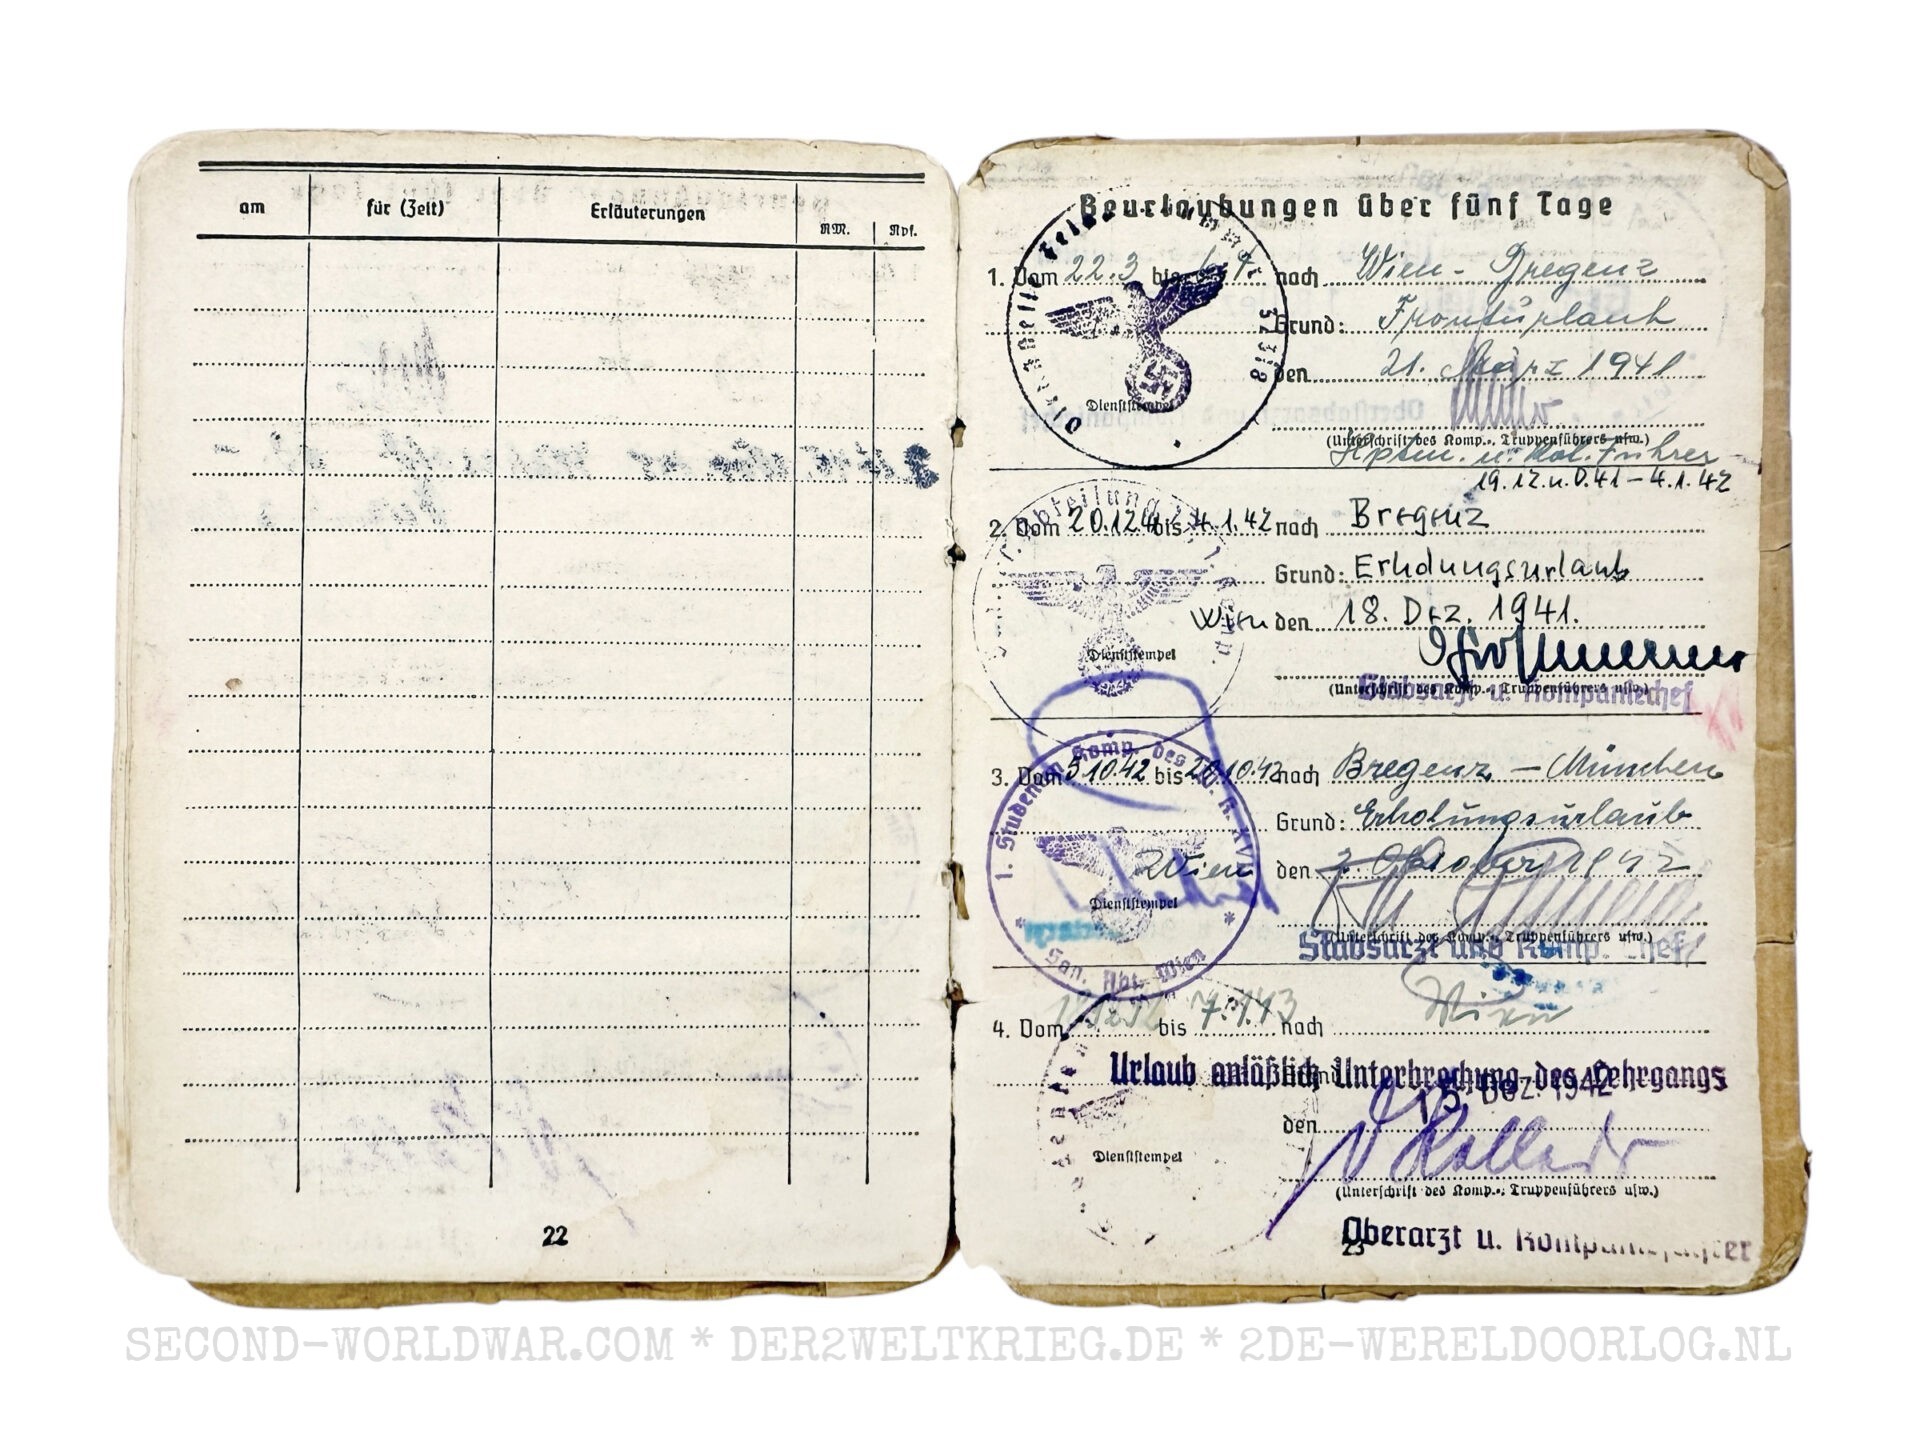 am für (Zeit) Erläuterungen RM. Rpf.
22
Beurlaubungen über fünf Tage
1. Vom 22.3 bis nach Wien - Bregenz
Grund: Fronturlaub
den 21. März 1941
Dienststempel
(Unterschrift des Komp.-, Truppenführers usw.)
Hptm. u. Kol. Führer
19.12.u.0.41 - 4.1.42
2. Vom 20.12.41 bis 4.1.42 nach Bregenz
Grund: Erholungsurlaub
Wien den 18. Dez. 1941.
Dienststempel
(Unterschrift des Komp.-, Truppenführers usw.)
Stabsarzt u. Kompaniechef
3. Vom 5.10.42 bis 20.10.42 nach Bregenz - München
Grund: Erholungsurlaub
Wien den 2. Oktober 1942
Dienststempel
(Unterschrift des Komp.-, Truppenführers usw.)
Stabsarzt und Komp. Chef
1. Studenten Komp. des W. K. XVII
San. Abt. Wien
4. Vom bis 7.1.43 nach Wien
Urlaub anläßlich Unterbrechung des Lehrgangs
15. Dez. 1942
den
Dienststempel
(Unterschrift des Komp.-, Truppenführers usw.)
Oberarzt u. Kompanieführer
23
SECOND-WORLDWAR.COM * DER2WELTKRIEG.DE * 2DE-WERELDOORLOG.NL